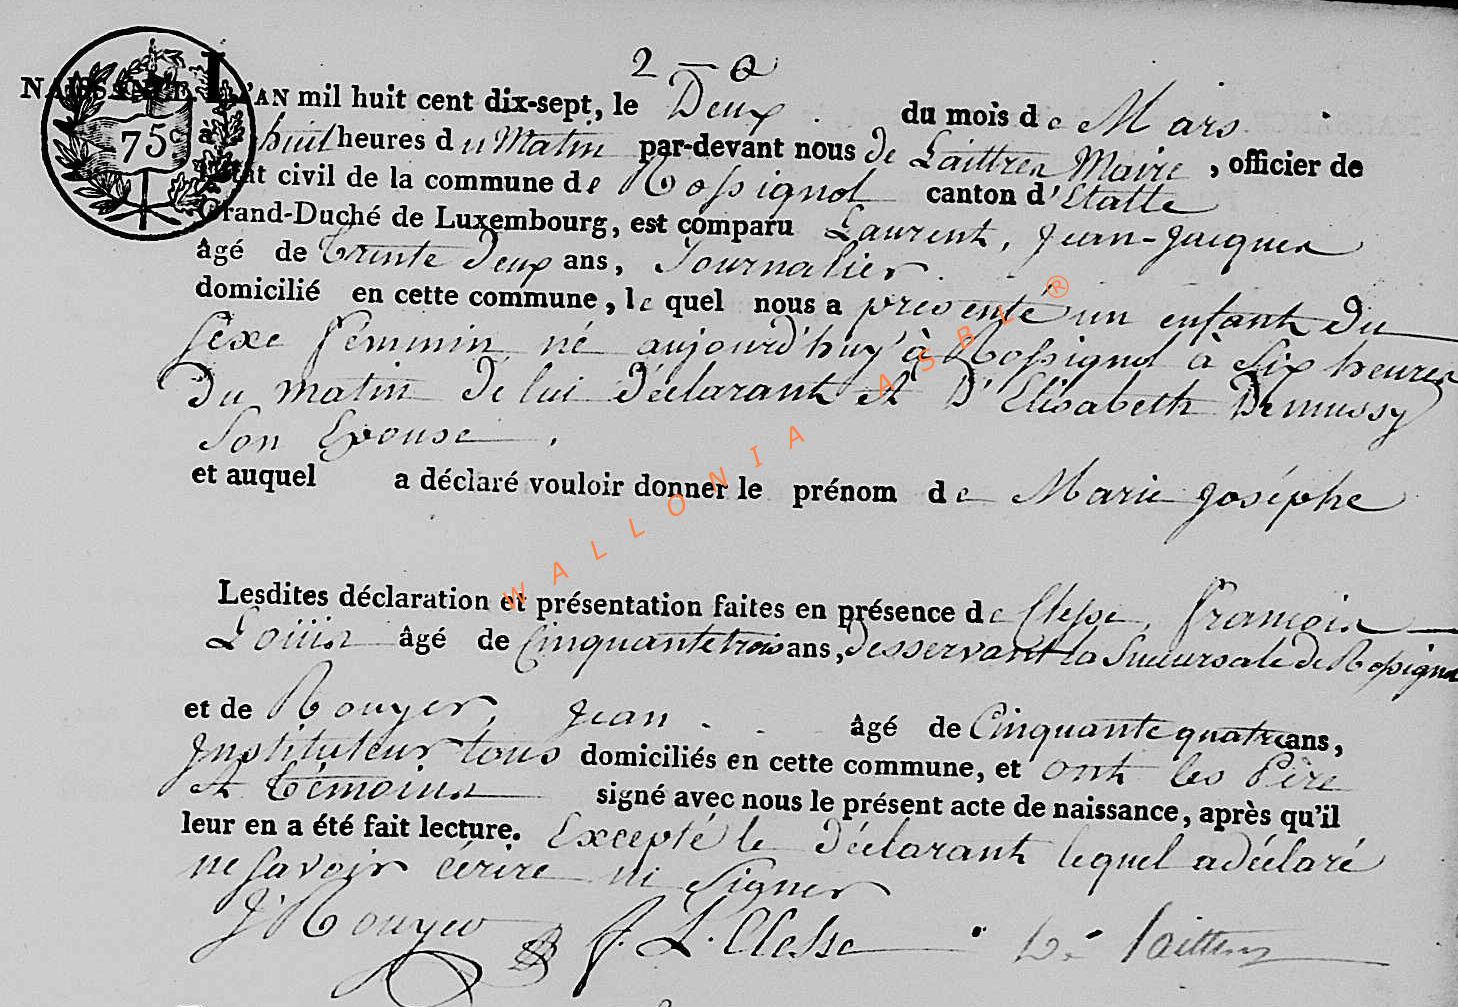 2
NAISSANCE. L'AN mil huit cent dix-sept, le Deux du mois de Mars
75c à huit heures du Matin par-devant nous De Laittres Maire, officier de
l'état civil de la commune de Rossignol canton d'Etalle
Grand-Duché de Luxembourg, est comparu Laurent, Jean-Jacques
âgé de trente Deux ans, Journalier.
domicilié en cette commune, le quel nous a presenté un enfant Du
Sexe feminin né aujourd'huy à Rossignol à Six heures
Du matin de lui Déclarant et D'Elisabeth Demussy
Son Epouse.
et auquel a déclaré vouloir donner le prénom de Marie Joséphe
WALLONIA ASBL ®
Lesdites déclaration et présentation faites en présence de Clesse, François
Louis âgé de Cinquante trois ans, Desservant la Succursale de Rossignol
et de Rouyer, Jean. âgé de Cinquante quatre ans,
Instituteur tous domiciliés en cette commune, et ont les Père
et témoins signé avec nous le présent acte de naissance, après qu'il
leur en a été fait lecture. Excepté le Déclarant lequel a déclaré
ne Savoir écrire ni Signer
J Rouyer F. L. Clesse De Laittres